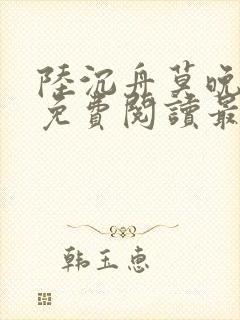 陸沉舟莫晚
免費閱讀最
韩玉惠